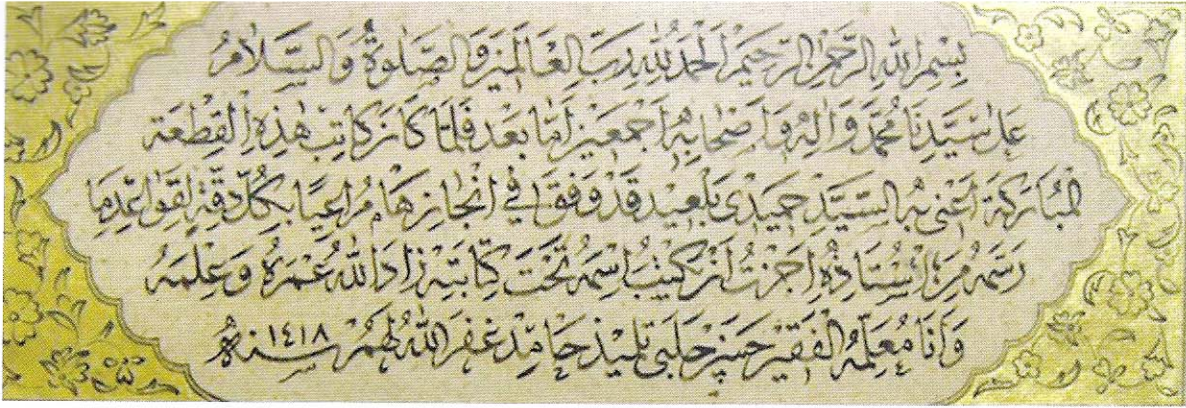 بِسْمِ اللهِ الرَّحْمٰنِ الرَّحِيمِ اَلْحَمْدُ لِلّٰهِ رَبِّ الْعَالَمِينَ وَالصَّلٰوةُ وَالسَّلَامُ
عَلٰى سَيِّدِنَا مُحَمَّدٍ وَاٰلِهِ وَاَصْحَابِهِ اَجْمَعِينَ اَمَّا بَعْدُ فَلَمَّا كَانَ كَاتِبُ هٰذِهِ الْقِطْعَةِ
الْمُبَارَكَةِ اَعْنِى بِهِ السَّيِّدَ حَمِيدِى بَلْعِيد قَدْ وَفَّقَ فِي اِنْجَازِهَا مُرَاعِيًا بِكُلِّ دِقَّةٍ لِقَوَاعِدِ مَا
رَسَمَهُ مِنْ اُسْتَاذِهِ اَجَزْتُ اَنْ يَكْتُبَ اِسْمَهُ تَحْتَ كِتَابَتِهِ زَادَ اللهُ عُمْرَهُ وَعِلْمَهُ
وَاَنَا مُعَلِّمُهُ الْفَقِيرُ حَسَن چَلَبِى تِلْمِيذ حَامِد غَفَرَ اللهُ لَهُمْ سنة ١٤١٨